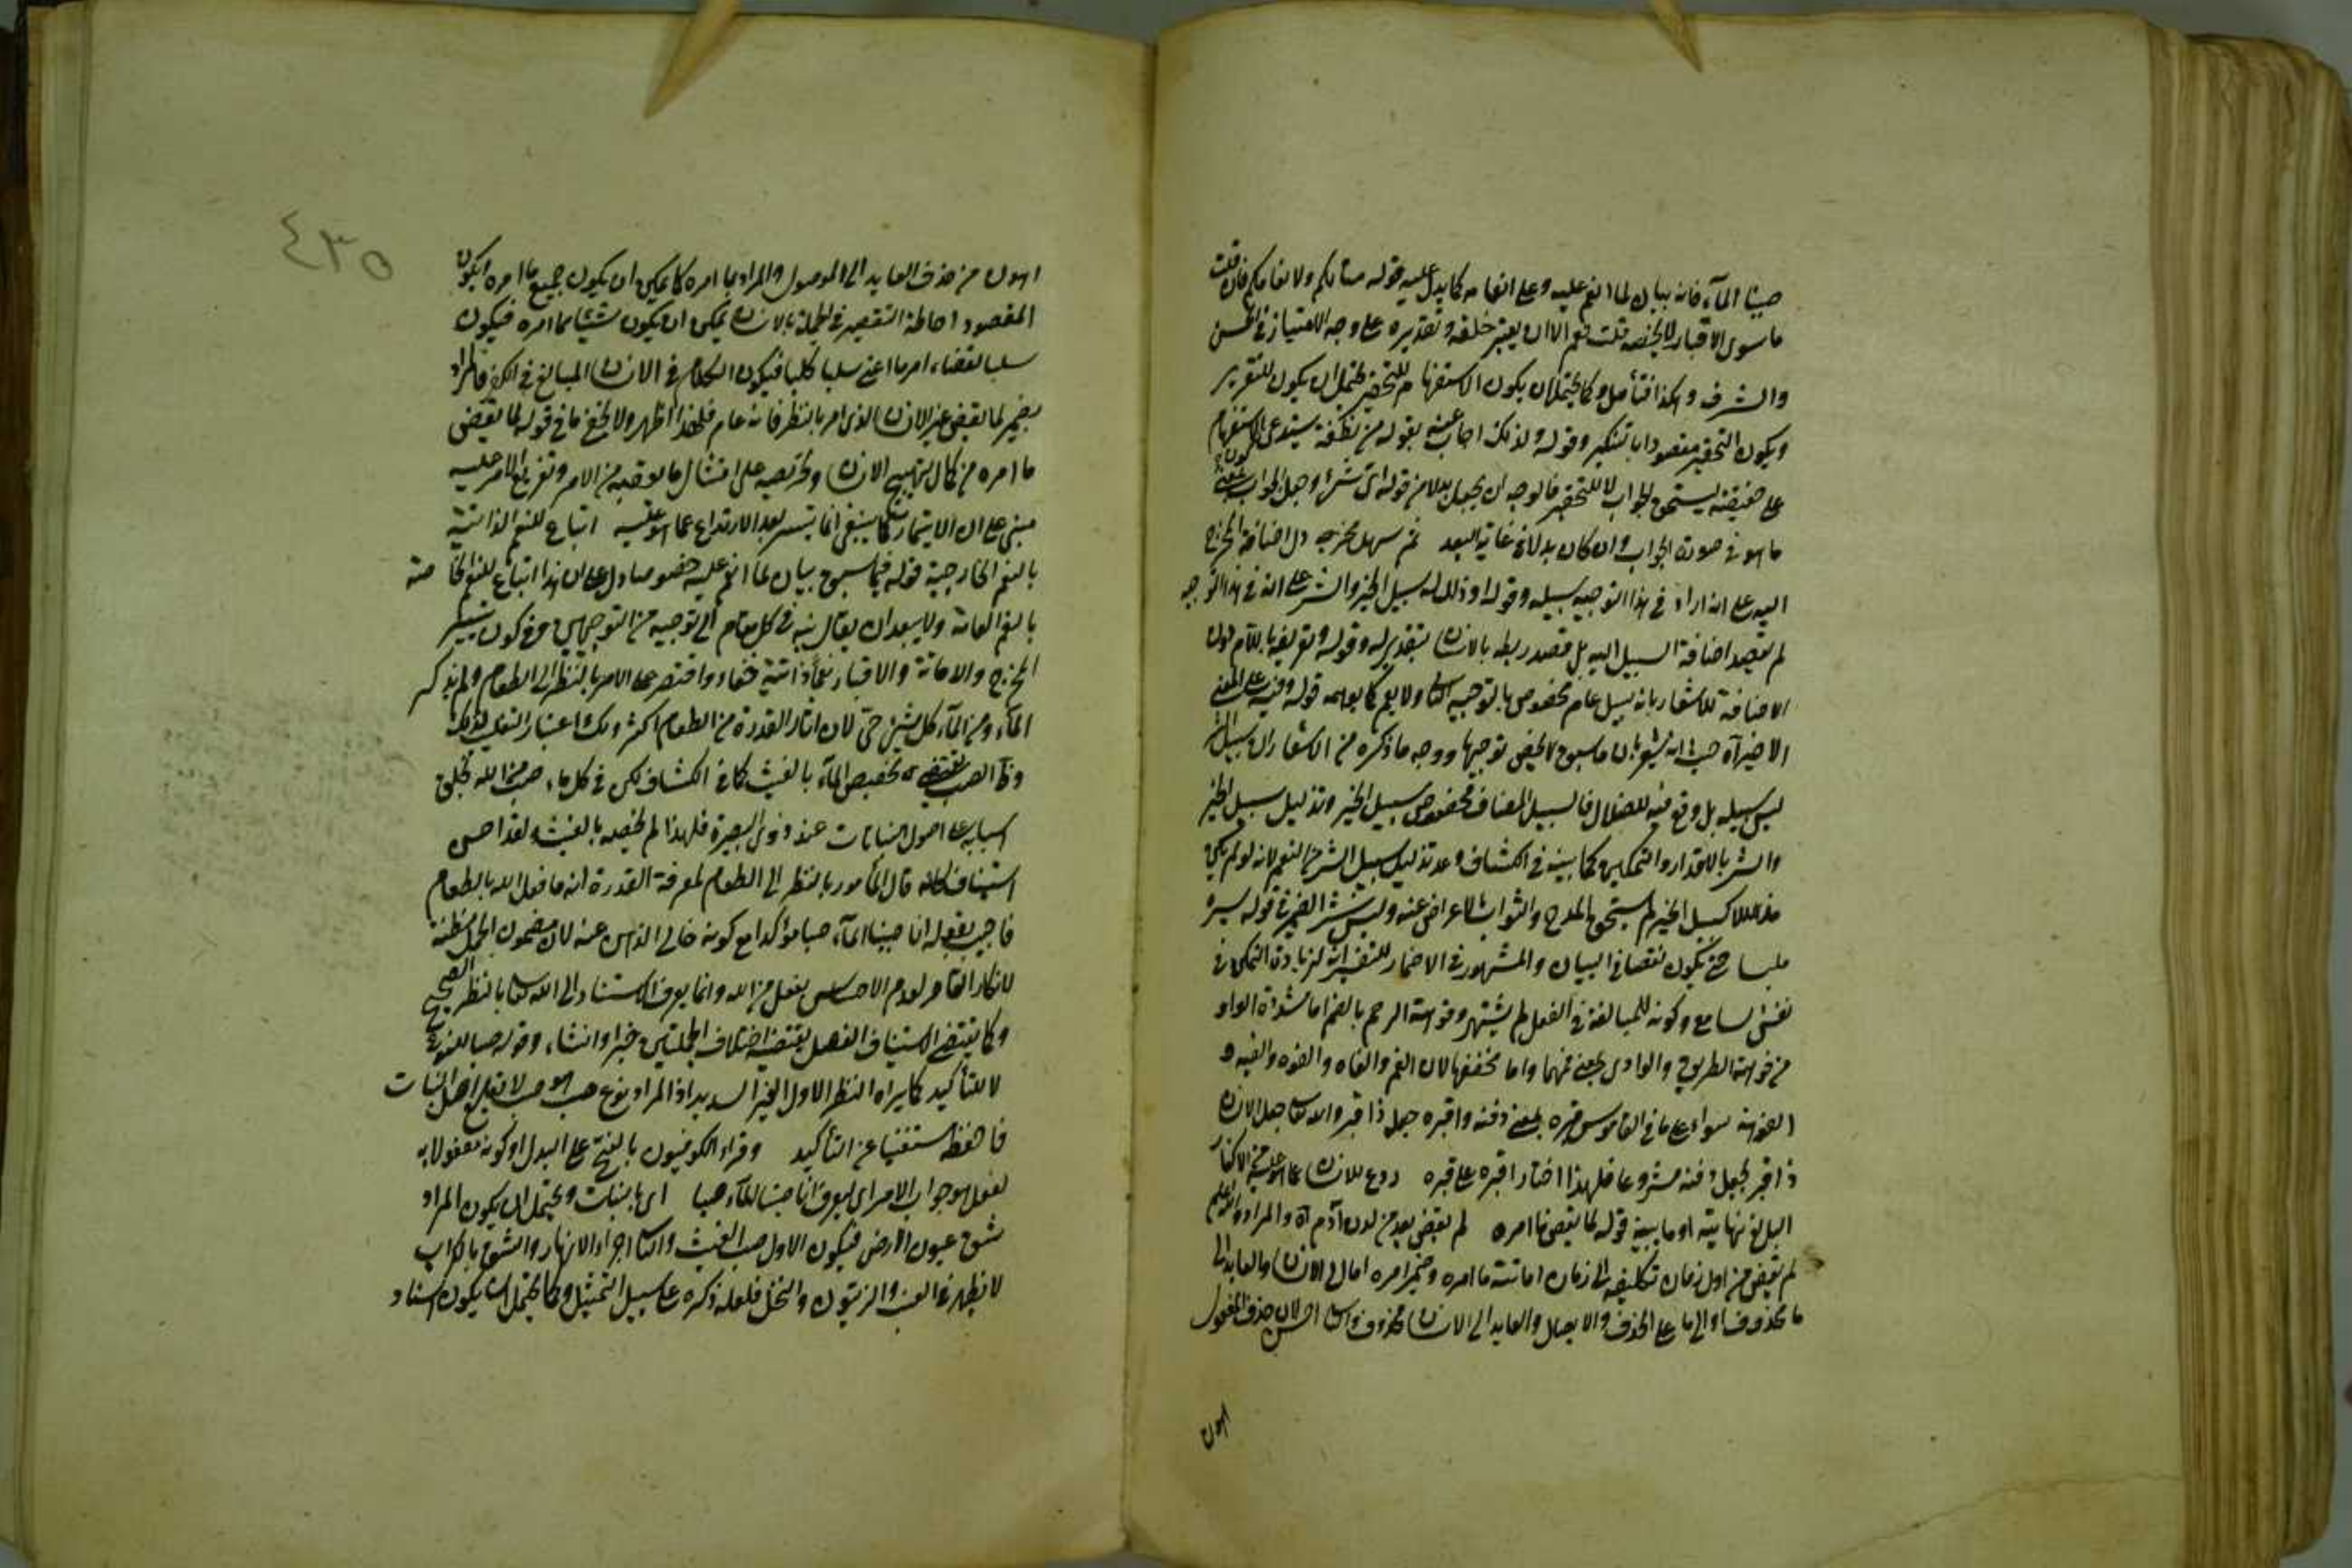 صببنا المآء فانه بيان لما انعم عليه وعلى انعامه كما يدل عليه قوله متاعا لكم ولانعامكم فان قلت
ما سوى الاقبار لا يخصه قلت نعم الا ان يعتبر خلقه وتقديره على وجه الامتياز في الحسن
والشرف وهكذا فتأمل وكما يحتمل ان يكون الاستفهام للتحقير يحتمل ان يكون للتقرير
ويكون التحقير مقصودا بالتنكير وقوله ولذلك اجاب عنه بقوله من نطفة يستدعي كون الاستفهام
على حقيقته ليستحق الجواب لا للتحقير فالوجه ان يجعل بدلا من قوله من اي شئ وجعل الجواب بمعنى
ما هو في صورة الجواب وان كان بدلا في غاية البعد ثم سهل مخرجه دل اضافة المخرج
اليه على انه اراد في هذا التوجيه سبيله وقوله او ذلل له سبيل الخير والشر على انه في هذا التوجيه
لم يقصد اضافة السبيل اليه بل قصد ربطه بالانسان بتقدير له وقوله وتعريفه باللام دون
الاضافة للاشعار بانه سبيل عام مخصوص بالتوجيه الثاني ولا يعم كما يوهمه قوله وفيه على المعنى
الاخير آه حيث انه يشعر بان ما سبق لا يخص توجيها ووجه ما ذكره من الاشعار ان سبيل الشر
ليس سبيله بل وقع فيه للضلال فالسبيل المضاف مخصوص بسبيل الخير وتذليل سبيل الخير
والشر بالاقدار والتمكين كما بينه في الكشاف وعد تذليل سبيل الشر من النعم لانه لو لم يكن
مذللا كسبيل الخير لم يستحق المدح والثواب بالاعراض عنه وليس نشر الضمير في قوله يسره
ملبسا حتى يكون نقصا في البيان والمشهور في الاضمار للتفسير انه لزيادة التمكن في
نفس السامع وكونه للمبالغة في الفعل لم يشتهر وفوهة الرحم بالضم اما مشددة الواو
من فوهة الطريق والوادي بمعنى فمهما واما مخففها لان الفم والفاه والفوه والفيه و
الفوهة سواء على ما في القاموس وقبره بمعنى دفنه واقبره جعله ذا قبر والله تعالى جعل الانسان
ذا قبر بجعل دفنه مشروعا فلهذا اختار اقبره على قبره ردع للانسان عما هو عليه من الانكار
البالغ نهايته او ما يبينه قوله لما يقض ما امره لم يقض بعد من لدن آدم آه والمراد والله اعلم
لم يقض من اول زمان تكليفه الى زمان اماتته ما امره وضمير امره اما الى الانسان والعايد الى
ما محذوف او الى ما على الحذف والايصال والعايد الى الانسان محذوف والثاني احسن لان حذف المفعول
اهون
٤٣٥
اهون من حذف العايد الى الموصول والمراد بما امره كما يمكن ان يكون جميع ما امره ويكون
المقصود احاطة التقصير في الجملة بالانسان يمكن ان يكون شئيا مما امره فيكون
سلبا لقضاء امر ما اعني سلبا كليا فيكون الكلام في الانسان المبالغ في الكفر فالمراد
بضمير لما يقض غير الانسان الذي امر بالنظر فانه عام فلهذا اظهر ولا يخفى ما في قوله لما يقض
ما امره من كمال تهييج الانسان وتحريصه على امتثال ما يعقبه من الامر وتفريع الامر عليه
مبني على ان الايتمار كما ينبغي انما يتيسر بعد الارتداع عما هو عليه اتباع للنعم الذاتية
بالنعم الخارجية قوله فيما سبق بيان لما انعم عليه خصوصا دل على ان هذا اتباع للنعم الخاصة
بالنعم العامة ولا يبعد ان يقال نبه في كل مقام الى توجيه من التوجيهين وفي كون تيسير
المخرج والاماتة والاقبار نعما ذاتية خفاء واقتصر على الامر بالنظر الى الطعام ولم يذكر
المآء ومن المآء كل شئ حي لان اثار القدرة من الطعام اكثر
يقتضي تخصيص المآء بالغيث كما في الكشاف لكن في كل ماء صب من الله بخلق
اسبابه على اصول النباتات عند ذوي البصيرة فلهذا لم يخصه بالغيث ولقد احسن
استيناف كانه قال المأمور بالنظر الى الطعام لمعرفة القدرة انه ما فعل الله بالطعام
فاجيب بقوله انا صببنا المآء صبا مؤكدا مع كونه خالي الذهن عنه لان مضمون الجمل مظنة
لانكار القاصر لعدم الاحساس بفعل من الله وانما يعرف الاستناد الى الله تعالى بالنظر الصحيح
وكما يقتضي الاستيناف الفصل يقتضيه اختلاف الجملتين خبرا وانشاء وقوله صبا للنوع
لا للتأكيد كما يراه النظر الاول الغير السديد اذ المراد نوع صب هو صب لا يقلع اصل النبات
فاحفظه مستغنيا عن التأكيد وقراء الكوفيون بالفتح على البدل او كونه مفعولا به
لفعل هو جواب الامر اي ليعرف انا صببنا المآء صبا اي بالنبات ويحتمل ان يكون المراد
شق عيون الارض فيكون الاول صب الغيث والثاني اجراء الانهار والشق بالكراب
لا يظهر في العنب والزيتون والنخل فلعله ذكره على سبيل التمثيل وكما يحتمل ان يكون اسناد